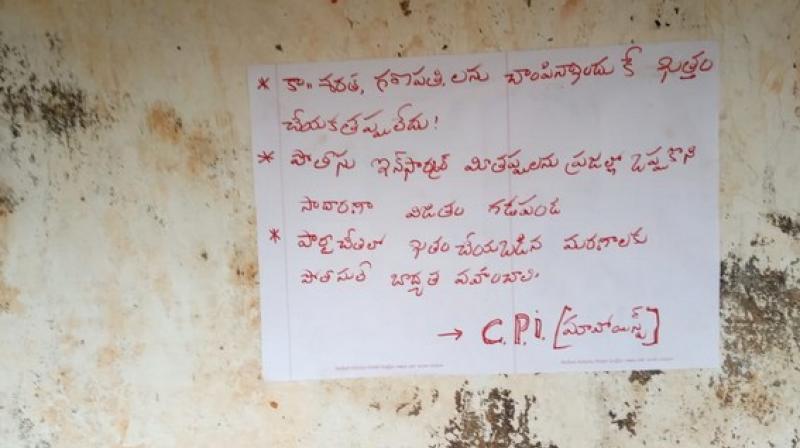 * కా॥ శరత, గణపతి, లను చాంపినాందు కే ఖత్తం
చేయకతప్పులేదు!
* పోతాసు ఇన్‌ఫార్మర్ మీతప్పులను ప్రజల్లో ఒప్పుకొని
సాదారణా జీవితం గడపండి
* పార్టీ చేతిలో ఖతం చేయబడిన మరణాలకు
పోలీసులే బాధ్యత వహించాలి.
→ C.P.I. [మావోయిస్ట్]